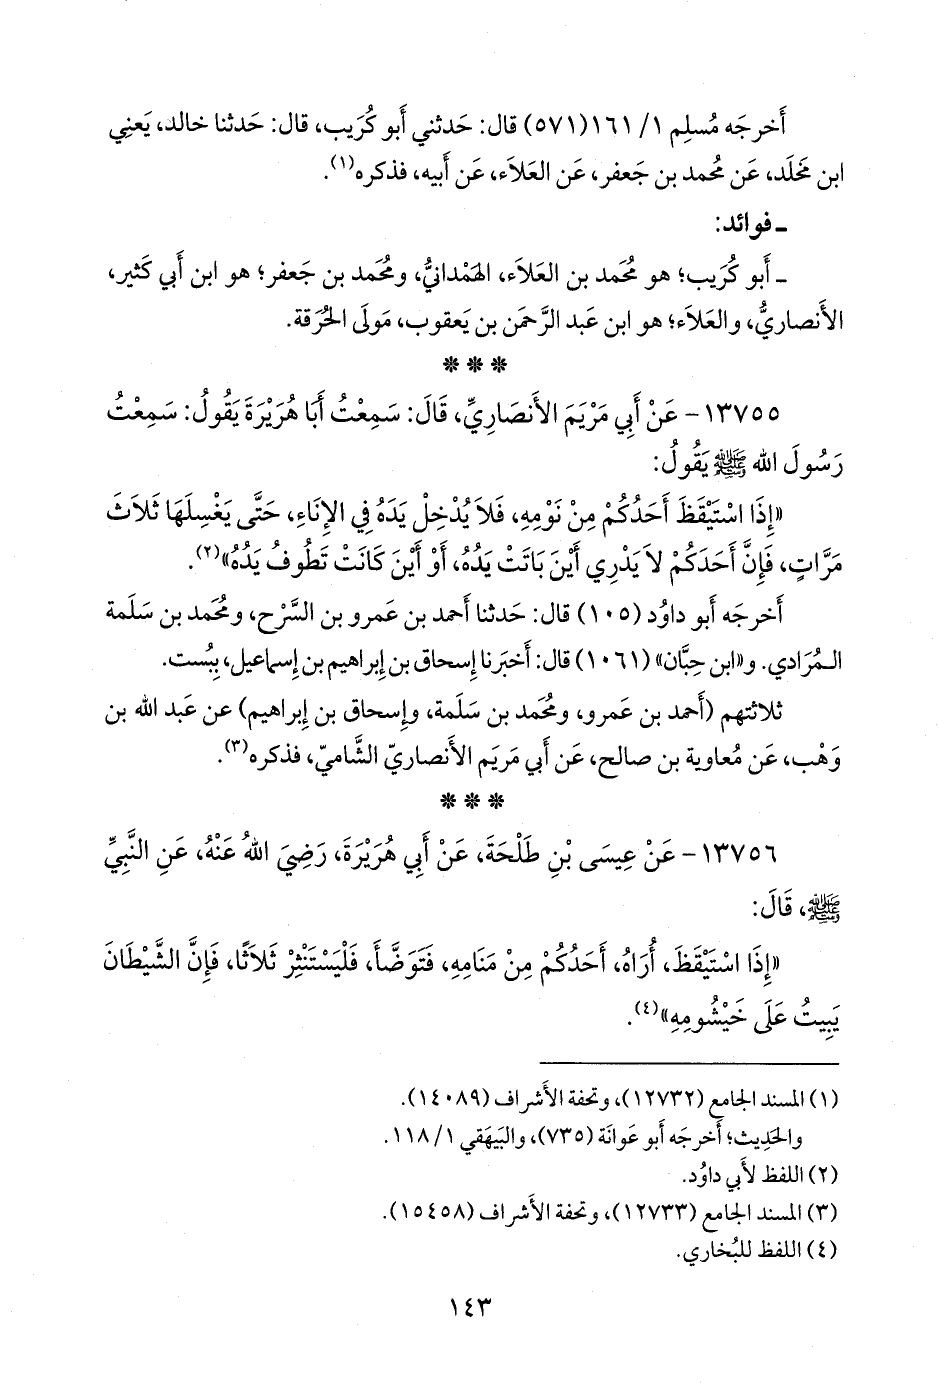 أَخرجَه مُسلِم ١/ ١٦١(٥٧١) قال: حَدثني أَبو كُرَيب، قال: حَدثنا خالد، يَعنِي
ابن مَخلَد، عَن مُحمد بن جَعفر، عَن العَلاَء، عَن أَبيه، فذكره(١).
ـ فوائد:
ـ أَبو كُرَيب؛ هو مُحمد بن العَلاَء، الهَمْدانيُّ، ومُحمد بن جَعفر؛ هو ابن أَبي كَثير،
الأَنصاريُّ، والعَلاَء؛ هو ابن عَبد الرَّحمَن بن يَعقوب، مَولَى الحُرَقة.
* * *
١٣٧٥٥- عَنْ أَبِي مَرْيَمَ الأَنصَارِيِّ، قَالَ: سَمِعْتُ أَبَا هُرَيْرَةَ يَقُولُ: سَمِعْتُ
رَسُولَ الله ﷺ يَقُولُ:
«إِذَا اسْتَيْقَظَ أَحَدُكُمْ مِنْ نَوْمِهِ، فَلاَ يُدْخِلْ يَدَهُ فِي الإِنَاءِ، حَتَّى يَغْسِلَهَا ثَلاَثَ
مَرَّاتٍ، فَإِنَّ أَحَدَكُمْ لاَ يَدْرِي أَيْنَ بَاتَتْ يَدُهُ، أَوْ أَيْنَ كَانَتْ تَطُوفُ يَدُهُ»(٢).
أَخرجَه أَبو داوُد (١٠٥) قال: حَدثنا أَحمد بن عَمرو بن السَّرْح، ومُحمد بن سَلَمة
المُرَادي. و«ابن حِبَّان» (١٠٦١) قال: أَخبَرنا إِسحاق بن إِبراهيم بن إِسماعيل، ببُست.
ثلاثتهم (أَحمد بن عَمرو، ومُحمد بن سَلَمة، وإِسحاق بن إِبراهيم) عن عَبد الله بن
وَهْب، عَن مُعاوية بن صالح، عَن أَبي مَريَم الأَنصاريّ الشَّاميّ، فذكره(٣).
* * *
١٣٧٥٦- عَنْ عِيسَى بْنِ طَلْحَةَ، عَنْ أَبِي هُرَيْرَةَ، رَضِيَ اللهُ عَنْهُ، عَنِ النَّبِيِّ
ﷺ، قَالَ:
«إِذَا اسْتَيْقَظَ، أُرَاهُ، أَحَدُكُمْ مِنْ مَنَامِهِ، فَتَوَضَّأَ، فَلْيَسْتَنْثِرْ ثَلاَثًا، فَإِنَّ الشَّيْطَانَ
يَبِيتُ عَلَى خَيْشُومِهِ»(٤).
(١) المسند الجامع (١٢٧٣٢)، وتحفة الأَشراف (١٤٠٨٩).
والحَدِيث؛ أَخرجَه أَبو عَوانَة (٧٣٥)، والبَيهَقي ١/ ١١٨.
(٢) اللفظ لأَبي داوُد.
(٣) المسند الجامع (١٢٧٣٣)، وتحفة الأَشراف (١٥٤٥٨).
(٤) اللفظ للبُخاري.
١٤٣